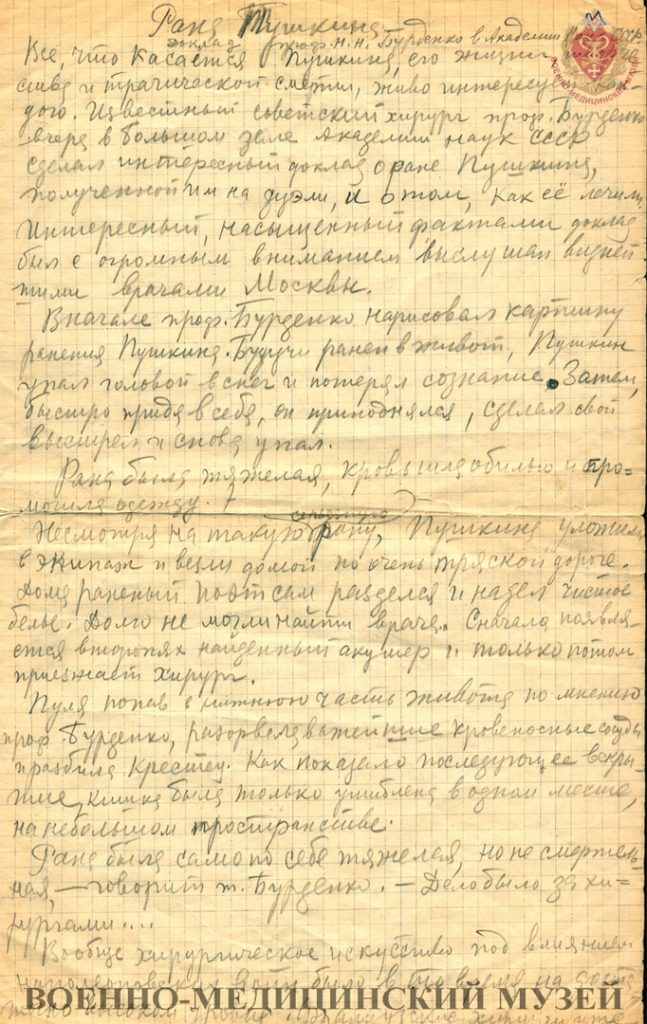 Рана Пушкина
доклад проф. Н. Н. Бурденко в Академии Наук СССР.
Все, что касается Пушкина, его жизни
и трагической смерти, живо интересует
дого. Известный советский хирург проф. Бурденко
вчера в большом зале Академии наук СССР
сделал интересный доклад о ране Пушкина,
полученной им на дуэли, и о том, как её лечили.
Интересный, насыщенный фактами доклад
был с огромным вниманием выслушан видней
шими врачами Москвы.
Вначале проф. Бурденко нарисовал картину
ранения Пушкина. Будучи ранен в живот, Пушкин
упал головой в снег и потерял сознание. Затем,
быстро придя в себя, он приподнялся, сделал свой
выстрел и снова упал.
Рана была тяжелая, кровь шла обильно и про=
мочила одежду.
серьезную
Несмотря на такую рану, Пушкина уложили
в экипаж и везли домой по очень тряской дороге.
Дома раненый поэт сам разделся и надел чистое
белье. Долго не могли найти врача. Сначала появля-
ется второпях найденный акушер и только потом
приезжает хирург.
Пуля, попав в нижнюю часть живота по мнению
проф. Бурденко, разорвала важнейшие кровеносные сосуды
и разбила крестец. Как показало последующее вскры-
тие, кишка была только ушиблена в одном месте,
на небольшом пространстве.
Рана была сама по себе тяжелая, но не смертель-
ная, — говорит т. Бурденко. — Дело было за хи-
рургами....
Вообще хирургическое искусство под влиянием
наполеоновских войн было в то время на
ВОЕННО-МЕДИЦИНСКИЙ МУЗЕЙ